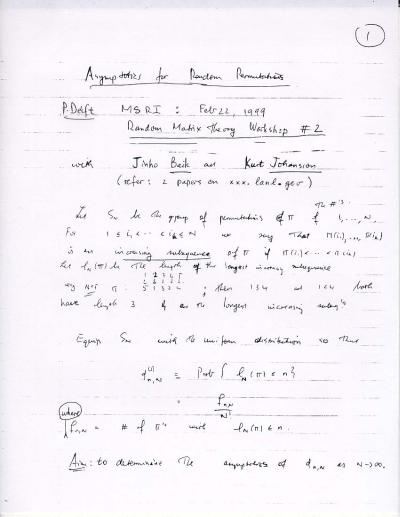 1
Asymptotics for Random Permutations
P. Deift MSRI : Feb 22, 1999
Random Matrix Theory Workshop # 2
with Jinho Baik and Kurt Johansson
(refer: 2 papers on xxx.lanl.gov)
the #'s
Let S_N be the group of permutations π of 1, ..., N.
For 1 ≤ i_1 < ... < i_k ≤ N we say that π(i_1), ..., π(i_k)
is an increasing subsequence of π if π(i_1) < ... < π(i_k)
Let l_N(π) be the length of the longest increasing subsequence
1 2 3 4 5
eg N=5 π : 5 1 3 2 4 ; then 1 3 4 and 1 2 4 both
have length 3 & are the longest increasing subseq's
Equip S_N with the uniform distribution so that
= Prob { l_N(π) ≤ n }
= f_{n,N} / N!
where
f_{n,N} = # of π's with l_N(π) ≤ n.
Aim: to determine the asymptotics of q_{n,N} as N→∞.